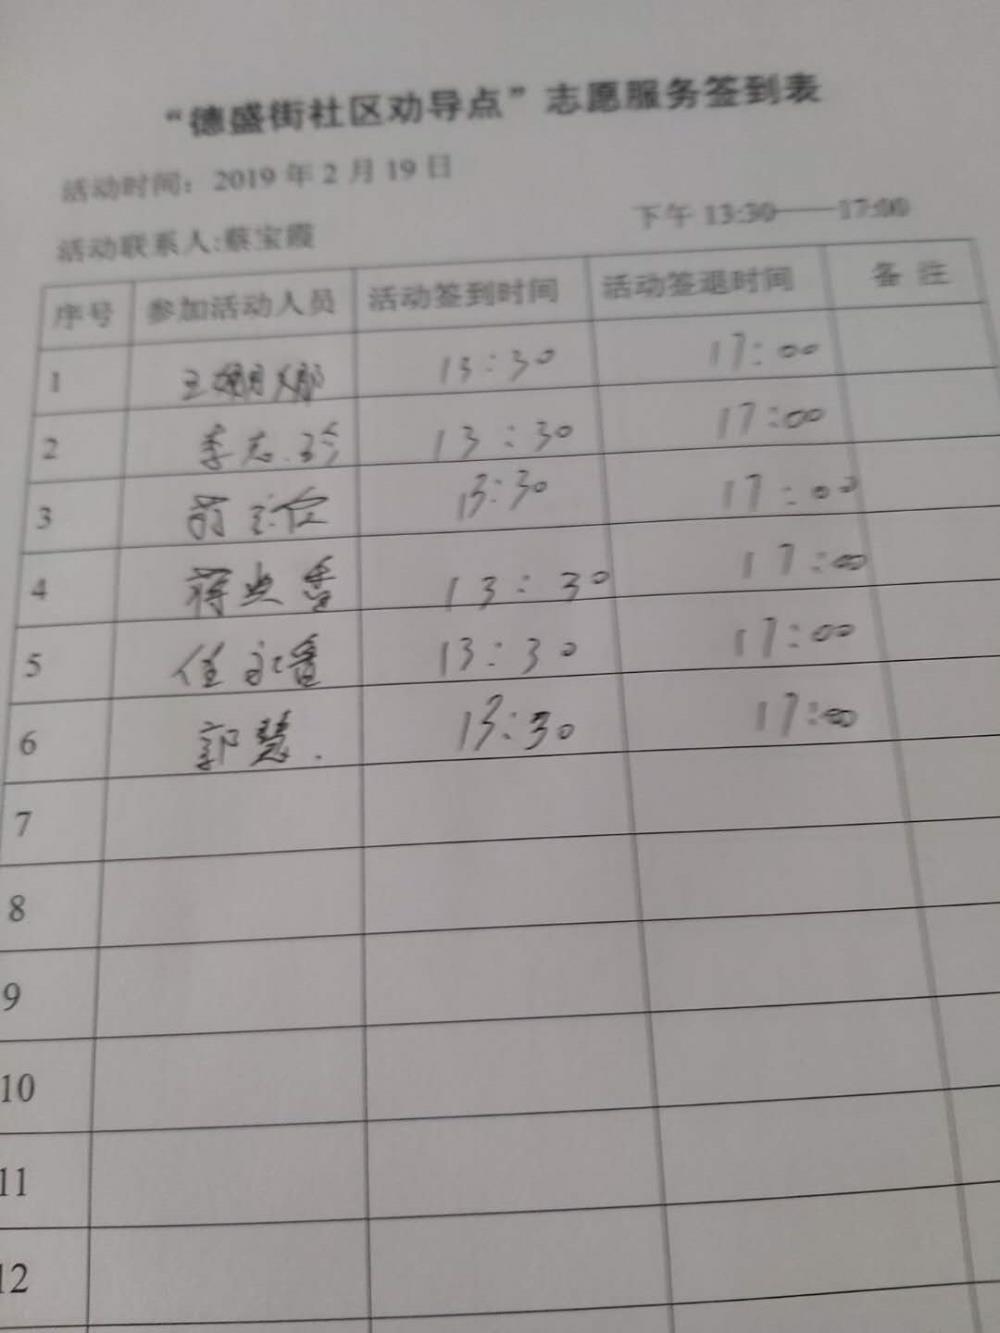 “德盛街社区劝导点”志愿服务签到表
活动时间：2019 年 2 月 19 日
活动联系人:蔡宝霞 下午 13:30——17:00
序号 参加活动人员 活动签到时间 活动签退时间 备 注
1 王娜 13:30 17:00
2 李志玲 13:30 17:00
3 13:30 17:00
4 蒋 香 13:30 17:00
5 任 13:30 17:00
6 郭慧. 13:30 17:00
7
8
9
10
11
12